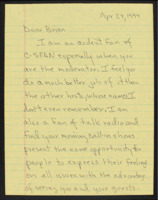 Apr 27, 1994
Dear Brian
I am an ardent fan of
C-SPAN especially when you
are the moderator. I feel you
do a much better job of it than
the other hosts, whose names I
don't even remember. I am
also a fan of talk radio and
find your morning call in shows
present the same opportunity to
people to express their feelings
on all issues with the advantage
of seeing you and your guests.